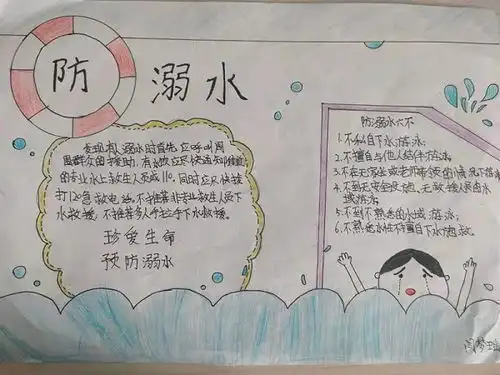 防溺水
发现有人溺水时首先应呼叫周
围群众的援助，有条件应尽快通知附近
的专业水上救生人员或110。同时应尽快拨
打120急救电话。不推荐非专业救生人员下
水救援。不推荐多人手拉手下水救援。
珍爱生命
预防溺水
防溺水六不
1.不私自下水游泳；
2.不擅自与他人结伴游泳；
3.不在无家长或老师带领的情况下游泳
4.不到无安全设施、无救援人员的水
域游泳；
5.不到不熟悉的水域游泳；
6.不熟悉水性不擅自下水施救。